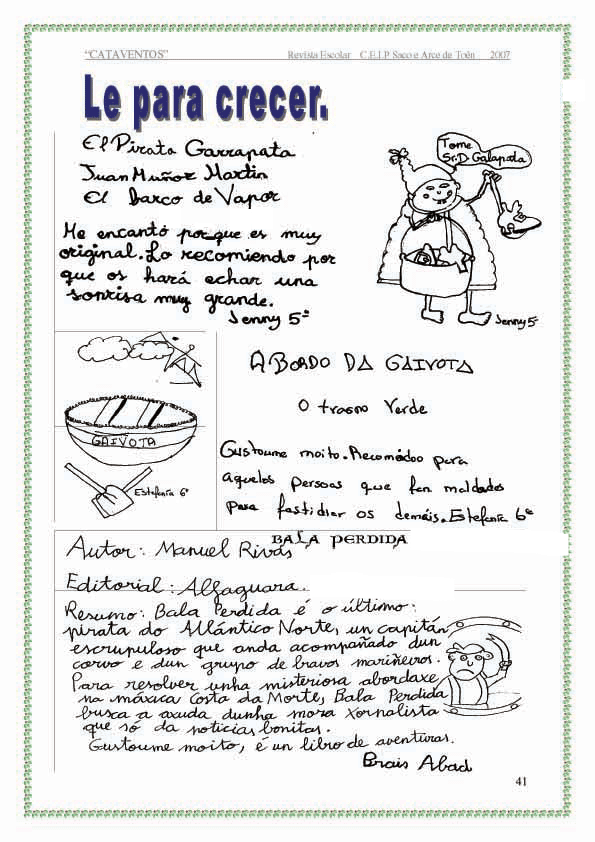 “CATAVENTOS” Revista Escolar C.E.I.P. Saco e Arce de Toén 2007
Le para crecer.
El Pirata Garrapata
Juan Muñoz Martin
El barco de Vapor
Me encantó porque es muy
original. Lo recomiendo por
que os hará echar una
sonrisa muy grande.
Jenny 5º
Tome
Sr.D. Galapata
Jenny 5º
A BORDO DA GAIVOTA
O trasno Verde
GAIVOTA
Estefanía 6º
Gustoume moito. Recomédoo para
aquelas persoas que fan maldades
para fastidiar os demáis. Estefanía 6º
BALA PERDIDA
Autor: Manuel Rivas
Editorial: Alfaguara.
Resumo: Bala Perdida é o último:
pirata do Atlántico Norte, un capitán
escrupuloso que anda acompañado dun
corvo e dun grupo de bravos mariñeiros.
Para resolver unha misteriosa abordaxe
na máxica Costa da Morte, Bala Perdida
busca a axuda dunha moza xornalista
que só da noticias bonitas.
Gustoume moito, é un libro de aventuras.
Brais Abad
41